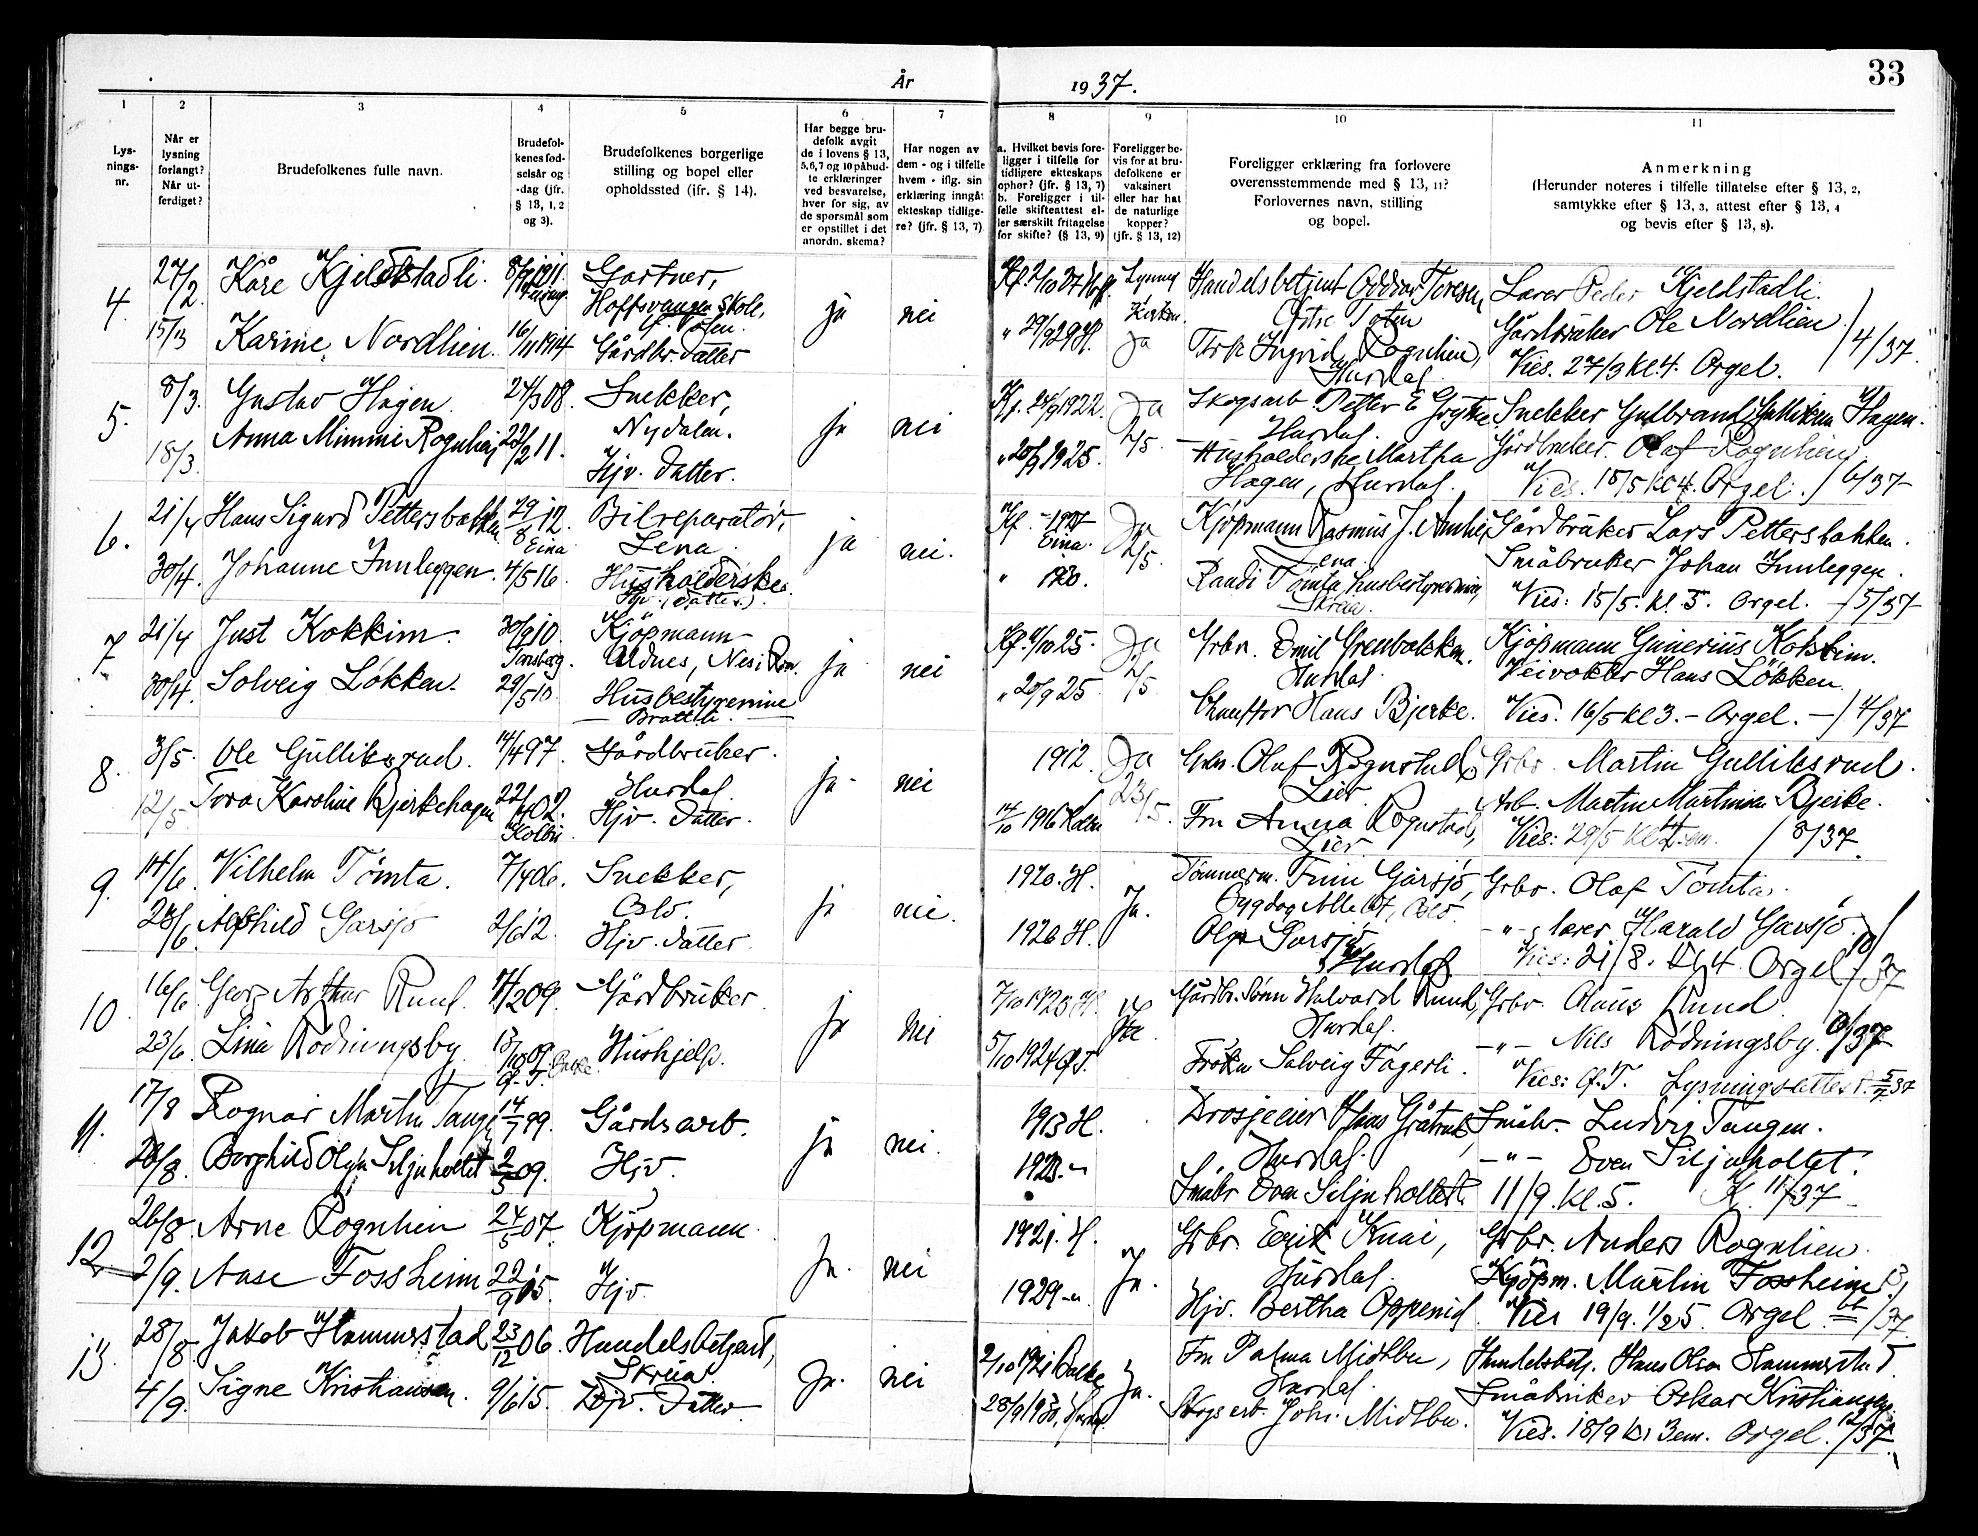 33
År
1937.
1
2
3
4
5
6
7
8
9
10
11
Lys-
nings-
nr.
Når er
lysning
forlangt?
Når ut-
ferdiget?
Brudefolkenes fulle navn.
Brudefol-
kenes fød-
selsår og
-dag (jfr.
§ 13, 1, 2
og 3).
Brudefolkenes borgerlige
stilling og bopel eller
opholdssted (ifr. § 14).
Har begge bru-
defolk avgit
de i lovens § 13,
5,6,7 og 10 påbud-
te erklæringer
ved besvarelse,
hver for sig, av
de spørsmål som
er opstillet i det
anordn. skema?
Har nogen av
dem - og i tilfelle
hvem - iflg. sin
erklæring inngåt
ekteskap tidlige-
re? (jfr. § 13, 7).
a. Hvilket bevis fore-
ligger i tilfelle for
tidligere ekteskaps
ophør? (jfr. § 13, 7)
b. Foreligger i til-
felle skifteattest el-
ler særskilt fritagelse
for skifte? (§ 13, 9)
Foreligger be-
vis for at bru-
defolkene er
vaksinert
eller har hat
de naturlige
kopper?
(jfr. § 13, 12)
Foreligger erklæring fra forlovere
overensstemmende med § 13, 11?
Forlovernes navn, stilling
og bopel.
Anmerkning
(Herunder noteres i tilfelle tillatelse efter § 13, 2,
samtykke efter § 13, 3, attest efter § 13, 4
og bevis efter § 13, 8).
4
27/2
Kåre Kjeldstadli.
Gartner,
Hoffsvangen skole,
ja
nei
Handelsbetjent Oddvar Toresen,
Østre Toten
Lærer Peder Kjeldstadli.
15/3
Karine Nordlien.
16/11 1914
Gårdbr. datter
" 29/9 29 H.
Ja
Frk Ingrid Rognlien,
Hurdal
Gårdbruker Ole Nordlien
Vies. 27/3 kl. 4. Orgel. 4/37.
5.
8/3.
Gustav Hagen.
Snekker,
Nydalen.
ja
nei
Ja
2/5.
Skogsarb. Petter E
Hurdal.
Snekker Gulbrand Gulliksen Hagen.
18/3.
Anna Mimmi
Hjv. datter.
Husholderske Martha
Hagen, Hurdal.
Gårdbruker. Olaf
Vies. 15/5 kl 4. Orgel. 6/37
6.
21/4
Hans Sigurd Pettersbakken
29/8 12.
Eina
Bilreparatør,
Lena.
ja
nei.
Kf. - 1927
Eina.
Ja
2/5.
Kjøpmann Rasmus J.
Lena.
Gårdbruker Lars Pettersbakken.
30/4.
Johanne Innleggen.
4/5 16.
Husholderske.
Hjv. (datter).
" 1930.
Randi Tømta, husbestyrerinne,
Skreia.
Småbruker Johan Innleggen.
Vies: 15/5. kl. 5. Orgel. 5/37
7
21/4
Just Kokkim.
30/9 10.
Tønsberg.
Kjøpmann
ja
nei
Kf. 4/10 25.
Ja
2/5
Grbr. Emil Grenbakken.
Hurdal
Kjøpmann Gunerius Kokkim.
30/4.
Solveig Løkken.
29/5 10.
Husbestyrerinne
" 20/9 25.
Chauffør Hans Bjerke.
Veivokter Hans Løkken.
Vies. 16/5 kl 3. - Orgel. - 7/37
8.
3/5.
Ole Gulliksrud.
14/4 97.
Gårdbruker.
Hurdal.
ja
nei
1912.
Ja
23/5.
Gbr. Olaf Rognstad
Lier.
Grbr. Martin Gulliksrud.
12/5
Tora Karoline Bjerkehagen
22/4 02.
Kolbu
Hjv. datter.
14/10 1916 Kolbu
Fru Anna Rognstad,
Lier
Arb. Martin Martinsen Bjerke.
Vies: 29/5 kl 4 8/37.
9.
14/6
Vilhelm Tømta.
7/4 06.
Snekker,
Oslo.
ja
nei.
1920. H.
Ja.
Tømmerm. Finn Garsjø,
Grbr. Olaf Tømta.
23/6
Alfhild Garsjø
2/6 12.
Hjv. datter.
1926 H.
Olga Garsjø
Hurdal
- " - g lærer Harald Garsjø.
Vies: 21/8. kl 4. Orgel 10/37
10.
16/6
Georg Arthur Ruud.
Gårdbruker.
ja
nei
Ja
Halvard Ruud,
Hurdal.
Grbr. Olaus Ruud
23/6
Lina Rødningsby
Ø. T.
Hushjelp.
5/10 1924 Ø.T.
Frøken Solveig Fagerli.
- " - Nils Rødningsby.
Vies: Ø. T. Lysningsattest 5/7 37
11.
17/8
Ragnar Martin Tangen
14/7 99.
Gårdsarb.
ja
nei.
1913 H.
Drosjeeier
Hurdal.
Småbr. Ludvig Tangen.
28/8.
Borghild Olga Siljuholtet
2/5 09.
Hjv.
1923. "
Småbr Even Siljuholtet.
- " - Even Siljuholtet.
11/9. kl. 5. K. 11/37
12
26/8.
Arne Rognlien
24/5 07.
Kjøpmann.
Ja.
nei
1921. H.
Ja.
Grbr. Erik Knai,
Hurdal.
Grbr. Anders Rognlien.
2/9.
Aase Fossheim
22/9 15.
Hjv.
1929 - "
Hjv. Bertha Oppenid
Kjøpm. Martin Fossheim
Vies 19/9. 1/2 5. Orgel. 13/37
13.
28/8.
Jakob Hammerstad
23/12 06.
Handelsbetjent,
Skreia.
Ja.
nei
Ja.
Fru Palma Midtbu,
Hurdal.
Handelsbetj. Hans Olsen Hammerstad.
4/9.
Signe Kristiansen.
9/6 15.
Hjv. Datter
28/9 1930, Hurdal
Skogsarb. Joh. Midtbu.
Småbruker Oskar Kristiansen.
Vies. 18/9 kl 3 em. Orgel. 12/37.